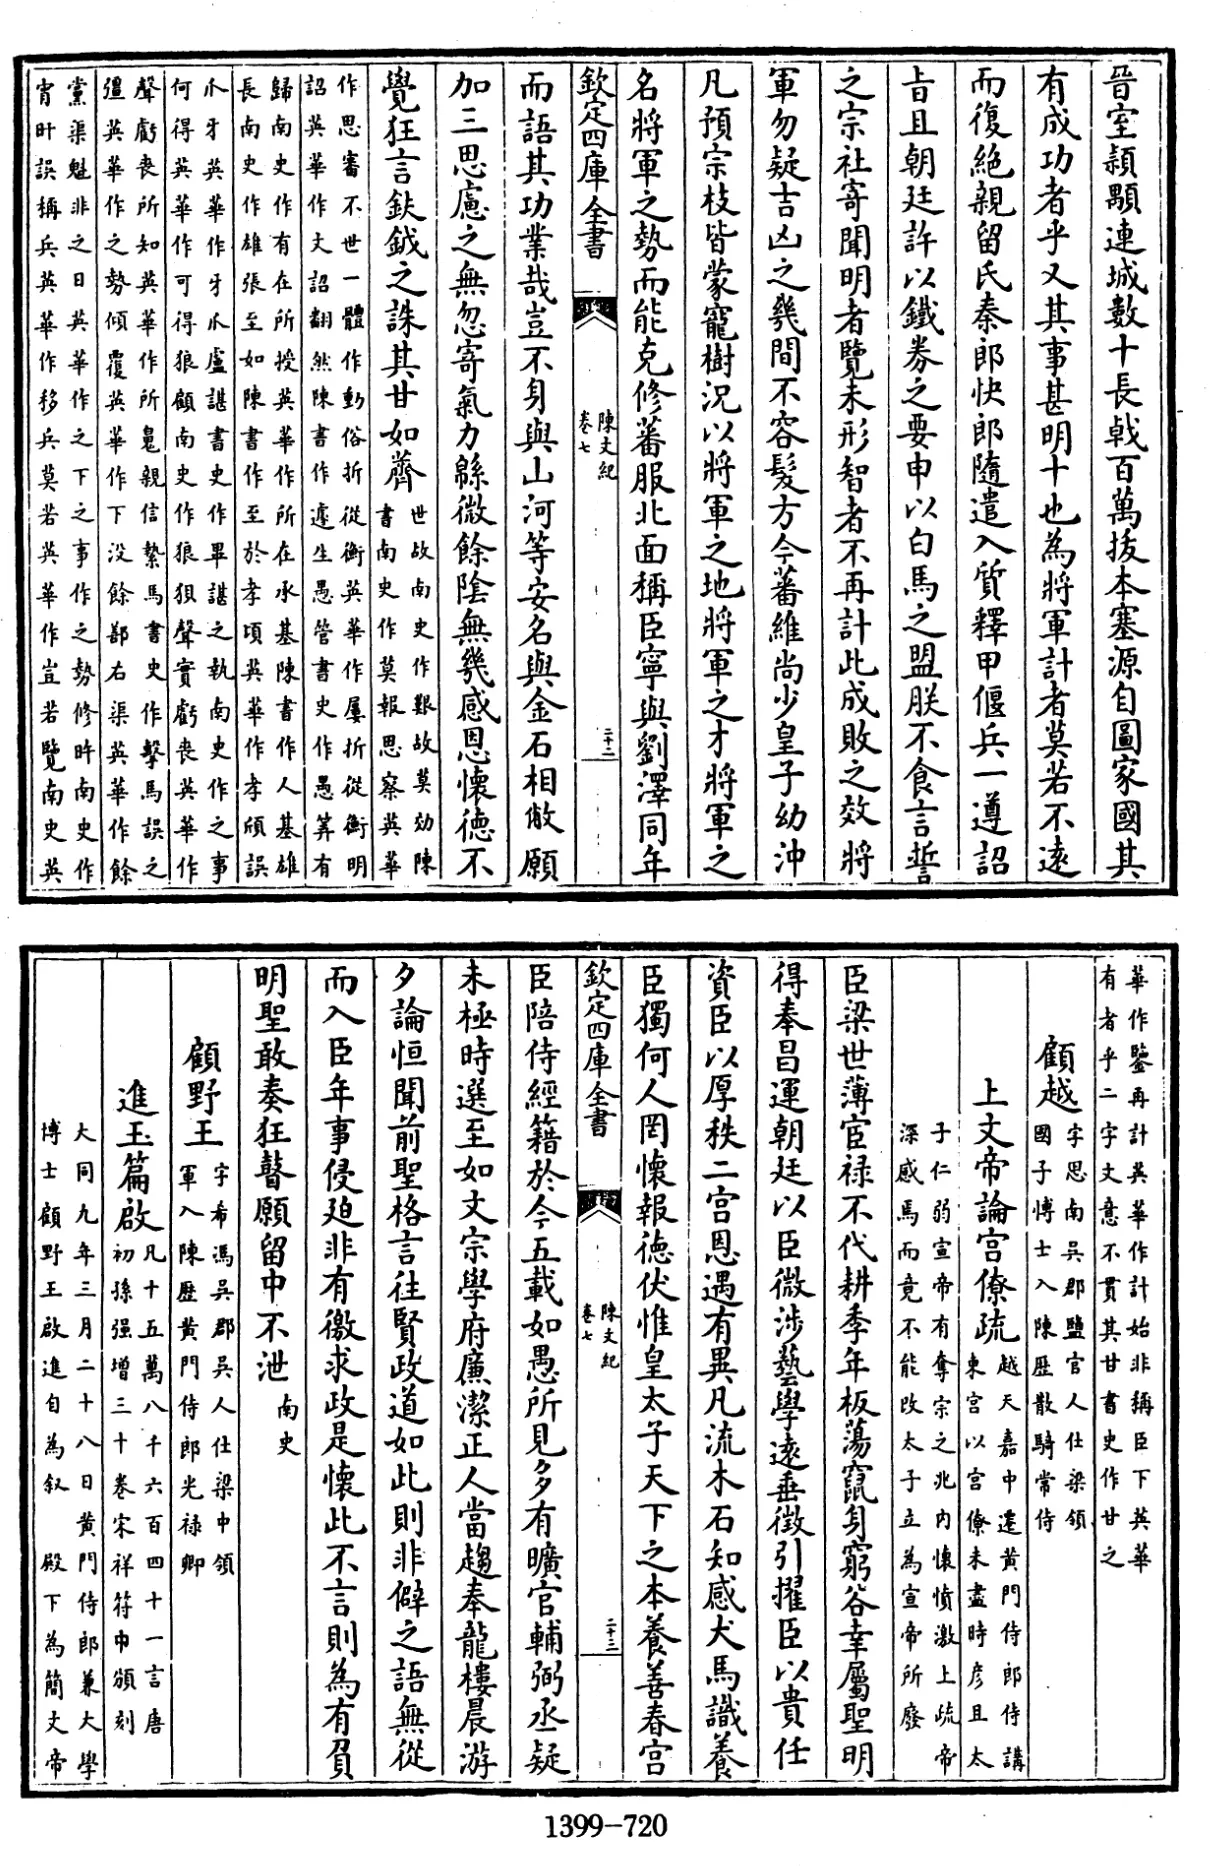 晉室潁顒連城數十長戟百萬拔本塞源自圖家國其
有成功者乎又其事甚明十也為將軍計者莫若不遠
而復絶親留氏秦郎快郎隨遣入質釋甲偃兵一遵詔
旨且朝廷許以鐵券之要申以白馬之盟朕不食言誓
之宗社寄聞明者覽未形智者不再計此成敗之效將
軍勿疑吉凶之幾間不容髮方今蕃維尚少皇子幼沖
凡預宗枝皆蒙寵樹況以將軍之地將軍之才將軍之
名將軍之勢而能克修蕃服北面稱臣寧與劉澤同年
欽定四庫全書
陳文紀
卷七
二十二
而語其功業哉豈不身與山河等安名與金石相敝願
加三思慮之無忽寄氣力緜微餘陰無幾感恩懷德不
覺狂言鈇鉞之誅其甘如薺
世故南史作艱故莫効陳
書南史作莫報思察英華
作思審不世一體作動俗折從衡英華作屢折從衡明
詔英華作大詔翻然陳書作遽生愚管書史作愚筭有
歸南史作有在所授英華作所在承基陳書作人基雄
長南史作雄張至如陳書作至於孝頃英華作孝頎誤
爪牙英華作牙爪盧諶書史作畢諶之執南史作之事
何得英華作可得狼顧南史作狼狽聲實虧喪英華作
聲虧喪所知英華作所㫤親信縶馬書史作擊馬誤之
彊英華作之勢傾覆英華作下没餘鄙右渠英華作餘
黨渠魁非之日英華作之下之事作之勢修旿南史作
宵旰誤稱兵英華作移兵莫若英華作豈若覽南史英
華作鑒再計英華作計始非稱臣下英華
有者乎二字文意不貫其甘書史作甘之
顧越
字思南吳郡鹽官人仕梁領
國子博士入陳歴散騎常侍
上文帝論宫僚疏
越天嘉中遷黄門侍郎侍講
東宫以宫僚未盡時彦且太
子仁弱宣帝有奪宗之兆内懐憤激上疏帝
深感焉而竟不能改太子立為宣帝所廢
臣梁世薄宦禄不代耕季年板蕩竄身窮谷幸屬聖明
得奉昌運朝廷以臣微涉藝學遠垂徴引擢臣以貴任
資臣以厚秩二宫恩遇有異凡流木石知感犬馬識養
臣獨何人罔懐報徳伏惟皇太子天下之本養善春宫
欽定四庫全書
陳文紀
卷七
二十三
臣陪侍經籍於今五載如愚所見多有曠官輔弼丞疑
未極時選至如文宗學府廉潔正人當趨奉龍樓晨游
夕論恒聞前聖格言往賢政道如此則非僻之語無從
而入臣年事侵廹非有徼求政是懷此不言則為有負
明聖敢奏狂瞽願留中不泄
南史
顧野王
字希馮吳郡吳人仕梁中領
軍入陳歴黄門侍郎光禄卿
進玉篇啟
凡十五萬八千六百四十一言唐
初孫强增三十卷宋祥符中頒刻
大同九年三月二十八日黄門侍郎兼大學
博士顧野王啟進自為叙 殿下為簡文帝
1399-720